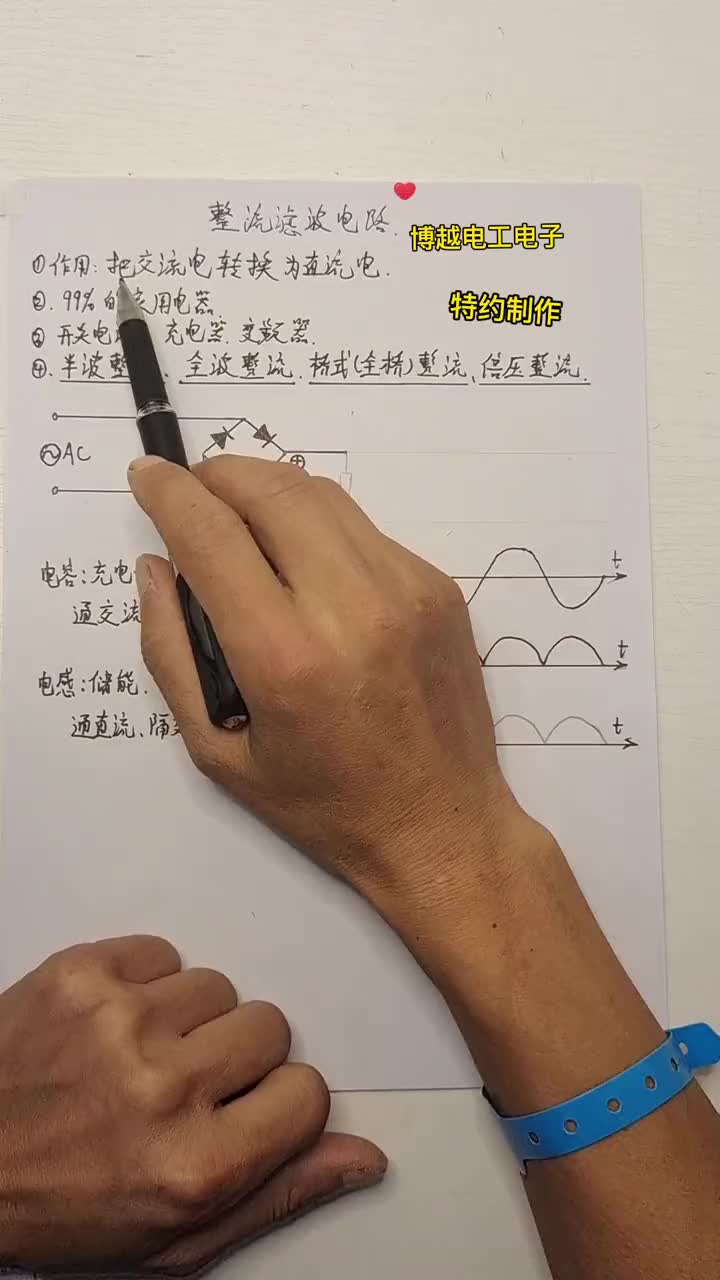 整流滤波电路.
博越电工电子
特约制作
①作用:把交流电转换为直流电.
②.99%的 用电器.
③开关电 充电器.变频器.
④.半波整 、全波整流.桥式(全桥)整流、倍压整流.
AC
⊕
t
电容:充电
通交流
t
电感:储能.
通直流、隔
t